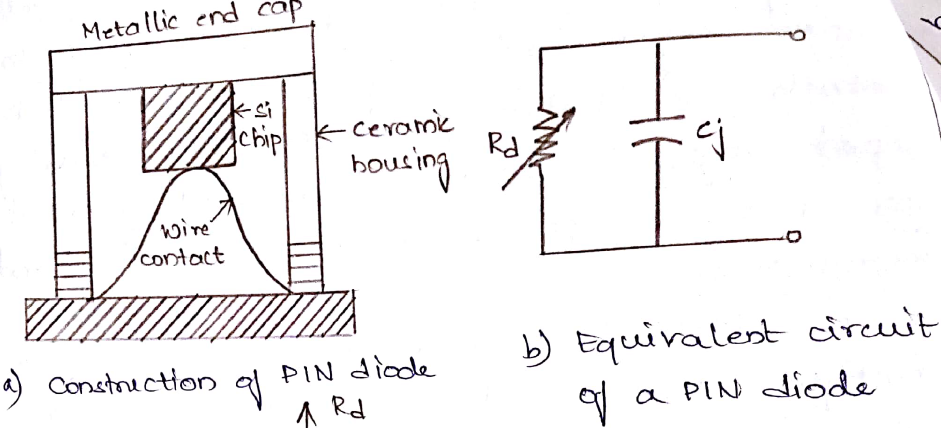 Metallic end cap
Si
chip
ceramic
housing
wire
contact
Rd
Cj
a) Construction of PIN diode
Rd
b) Equivalent circuit
of a PIN diode